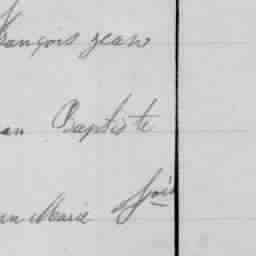 François Jean
an Baptiste
an Marie